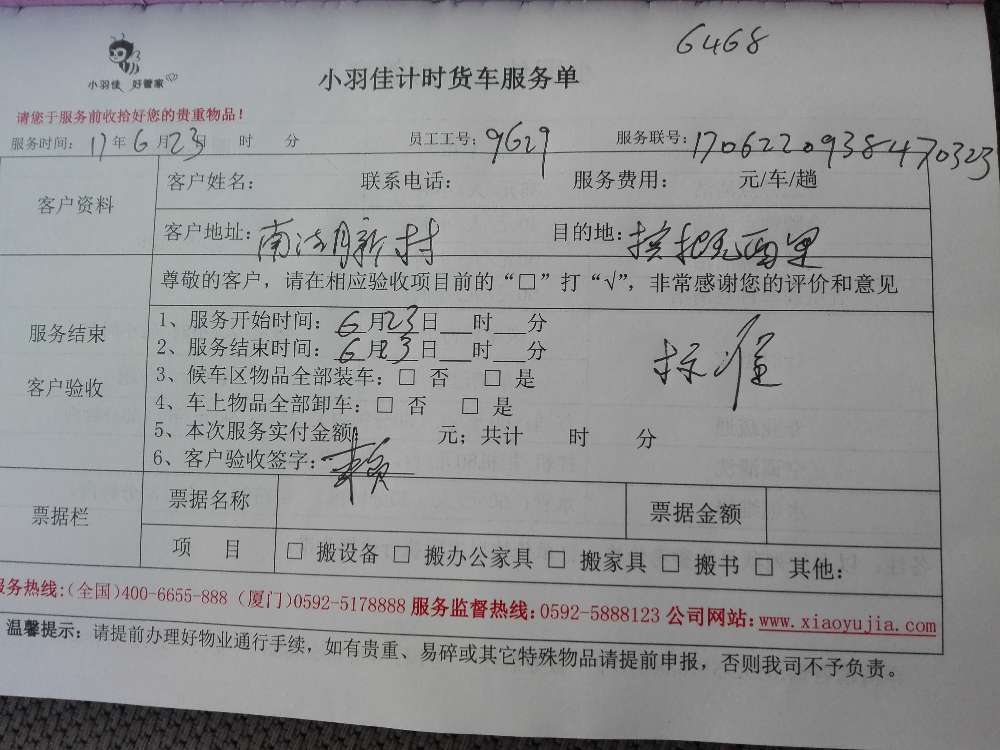 6468
小羽佳 好管家
小羽佳计时货车服务单
请您于服务前收拾好您的贵重物品！
服务时间：17年6月23日 时 分 员工工号：9629 服务联号：170622093847 0323
客户资料
客户姓名： 联系电话： 服务费用： 元/车/趟
客户地址：南湖新村 目的地：
尊敬的客户，请在相应验收项目前的“□”打“√”，非常感谢您的评价和意见
服务结束
客户验收
1、服务开始时间：6月23日___时___分
2、服务结束时间：6月23日___时___分
标准
3、候车区物品全部装车：□ 否 □ 是
4、车上物品全部卸车：□ 否 □ 是
5、本次服务实付金额： 元；共计 时 分
6、客户验收签字：赖
票据栏
票据名称 票据金额
项 目 □ 搬设备 □ 搬办公家具 □ 搬家具 □ 搬书 □ 其他：
服务热线：（全国）400-6655-888（厦门）0592-5178888 服务监督热线：0592-5888123 公司网站：www.xiaoyujia.com
温馨提示：请提前办理好物业通行手续，如有贵重、易碎或其它特殊物品请提前申报，否则我司不予负责。